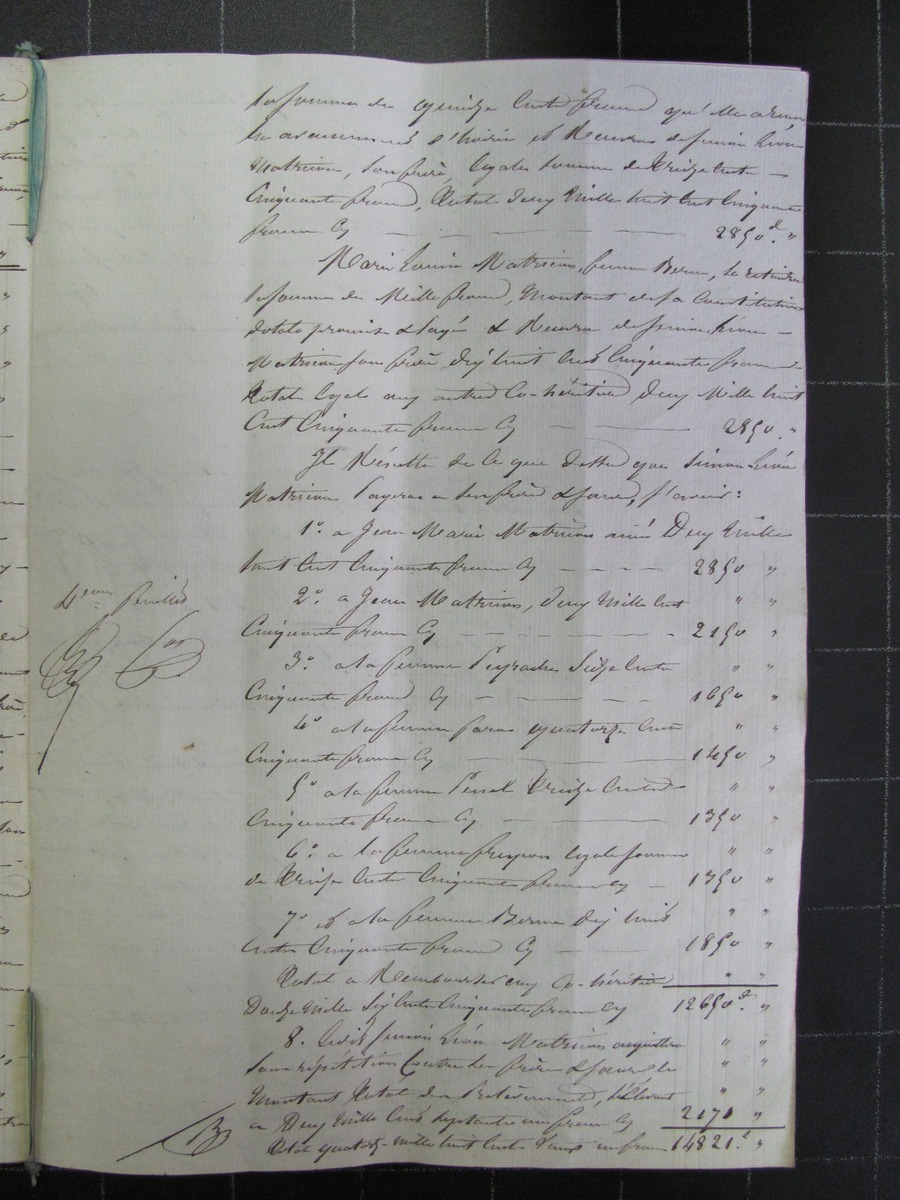 la somme de quinze Cents francs qu'elle a reçu
en avancement d'hoirie et Recevra de Simon Léon
Mathieu, son frère, égale somme de treize Cents
Cinquante francs, Total Deux Mille huit Cent Cinquante
francs Cy 2850 f. "
Marie Louise Mathieu, femme Berne, se retiendra
la somme de Mille francs, Montant de sa Constitution
dotale promise & payée & Recevra de Simon Léon
Mathieu son frère, dix huit Cents Cinquante francs
Total égale aux autres Co-héritiers Deux Mille huit
Cent Cinquante francs Cy 2850. "
Il Résulte de Ce que dessus que Simon Léon
Mathieu Payera a ses frères & sœurs, savoir:
1° a Jean Marie Mathieu ainé Deux Mille
huit Cent Cinquante francs Cy 2850 "
2° a Jean Mathieu, Deux Mille Cent " "
Cinquante francs Cy 2150 "
3° a la femme Peyrache Seize Cents " "
Cinquante francs Cy 1650 "
4° a la femme quatorze Cents " "
Cinquante francs Cy 1450 "
5° a la femme treize Cents " "
Cinquante francs Cy 1350 "
6° a la femme égale somme " "
de treize Cents Cinquante francs Cy 1350 "
7° & a la femme Berne dix huit " "
Cents Cinquante francs Cy 1850 "
Total a Rembourser aux Co-héritiers " "
Douze Mille Six Cents Cinquante francs Cy 12650 f. "
8. Ledit Simon Léon Mathieu " "
sans répétition Contre ses frères & sœurs le " "
Montant Total des Prélèvements, s'élevant " "
a Deux Mille Cent septante un francs Cy 2171 "
Total quatorze mille huit Cents vingt un francs 14821 f. "